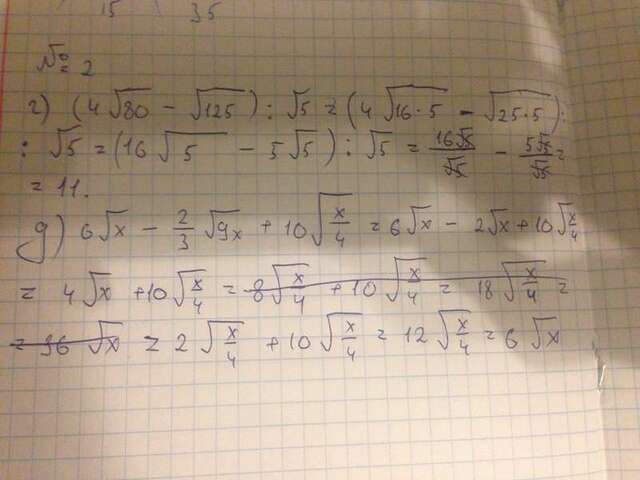 15 35
№ 2
г) (4√80 − √125) : √5 = (4√16·5 − √25·5) :
: √5 = (16√5 − 5√5) : √5 = 16√5/√5 − 5√5/√5 =
= 11.
д) 6√x − 2/3 √9x + 10√x/4 = 6√x − 2√x + 10√x/4
= 4√x + 10√x/4 = 8√x/4 + 10√x/4 = 18√x/4 =
= 36√x = 2√x/4 + 10√x/4 = 12√x/4 = 6√x